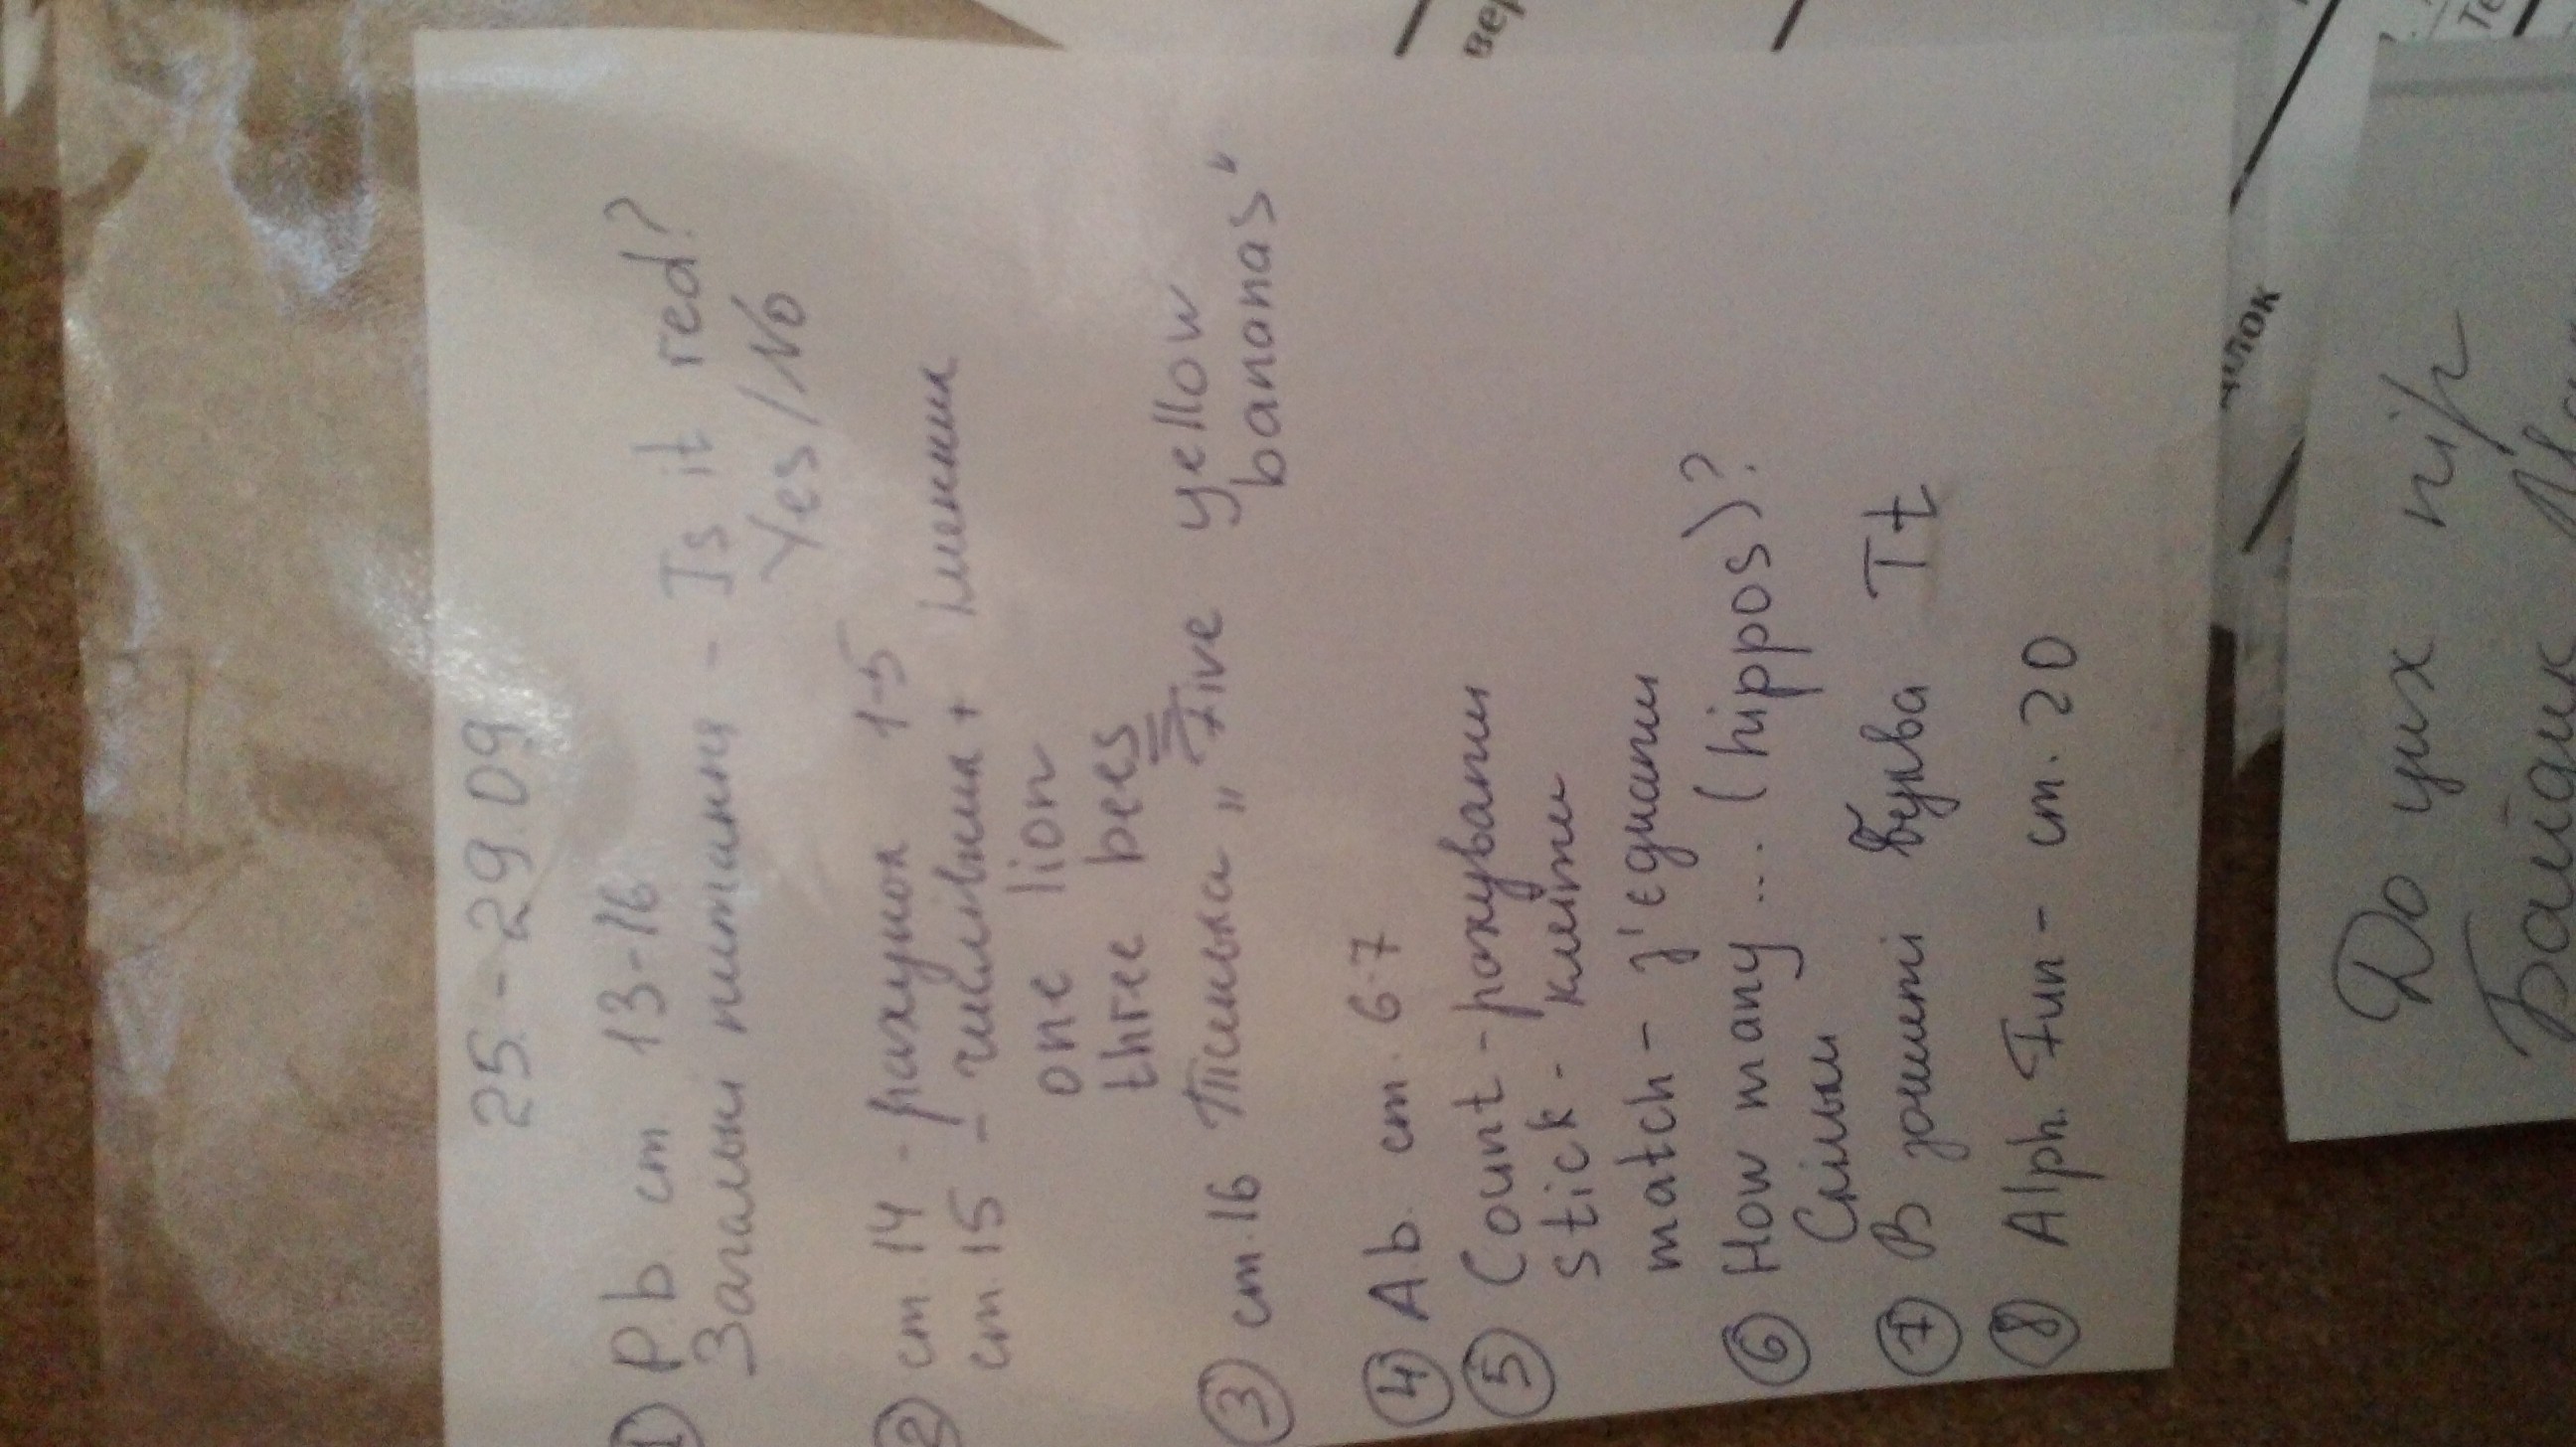 25.-29.09
① P.b. ст. 13-16
Загальні питання - Is it red?
Yes/No
② ст. 14 - рахунок 1-5
ст. 15 - числівник + іменник
one lion
three bees
③ ст. 16 Пісенька „Five yellow
bananas"
④ A.b. ст. 6-7
⑤ Count - рахувати
stick - клеїти
match - з'єднати
⑥ How many ... (hippos)?
Скільки
⑦ В зошиті буква Tt
⑧ Alph. Fun - ст. 20
ділок
До цих пір
Байдик
вер